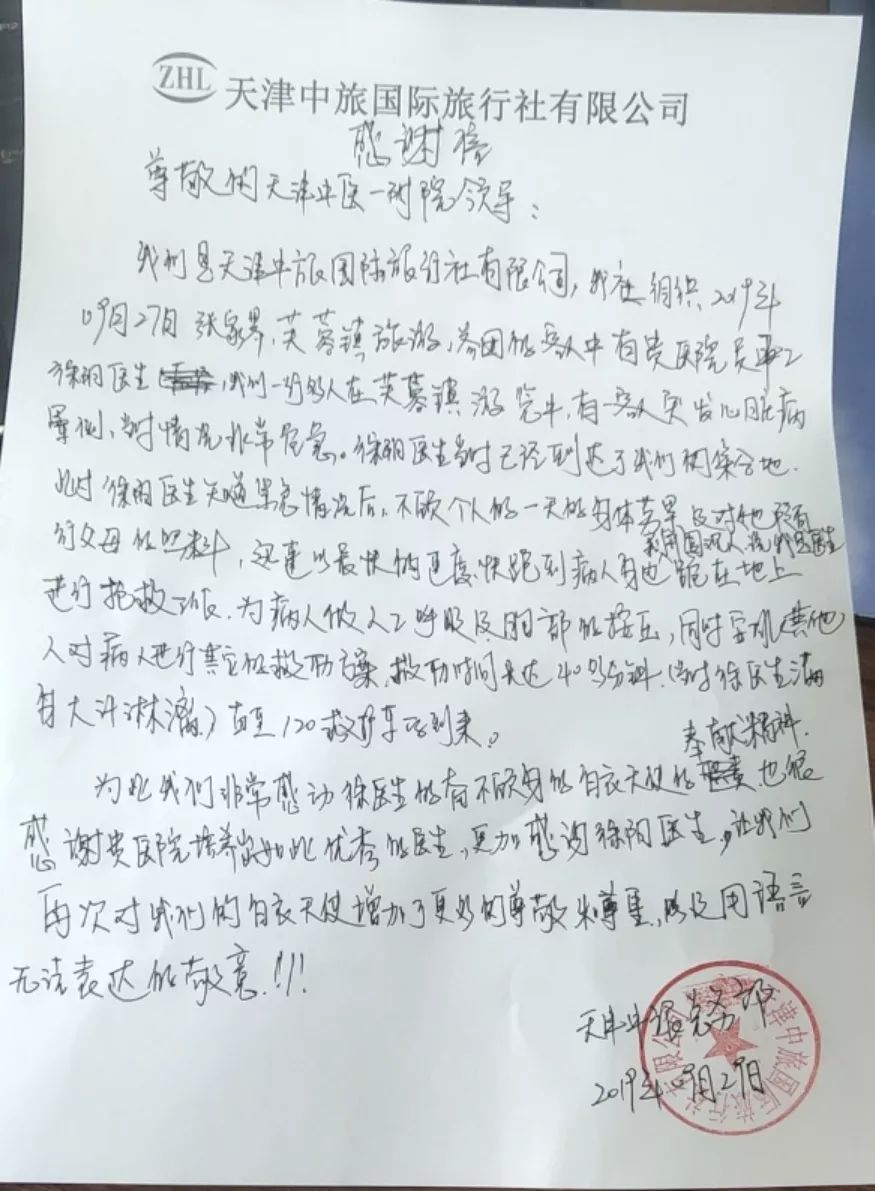 ZHL 天津中旅国际旅行社有限公司
感谢信
尊敬的天津中医一附院领导:
我们是天津中旅国际旅行社有限公司,我社组织2019年
09月27日张家界,芙蓉镇旅游,参团的客人中有贵医院员工
徐明医生,我们一行的人在芙蓉镇游览中,有一客人突发心脏病
晕倒,当时情况非常危急。徐明医生当时已经到达了我们的集合地.
此时徐明医生知道紧急情况后,不顾个人的一天的身体劳累及对他
行父母的照料,迅速以最快的速度快跑到病人身边跪在地上
进行抢救工作.为病人做人工呼吸及胸部的按压,同时安排其他
人对病人进行其它的救助方案,救助时间长达40多分钟.(当时徐医生满
身大汗淋漓)直至120救护车的到来。
奉献精神.
为此我们非常感动徐医生的奋不顾身的白衣天使的 也很
感谢贵医院培养出如此优秀的医生,更加感谢徐明医生,让我们
再次对我们的白衣天使增加了更多的尊敬和尊重,以及用语言
无法表达的敬意!!!
天津中旅 部
2019年09月29日
天津中旅国际旅行社有限公司